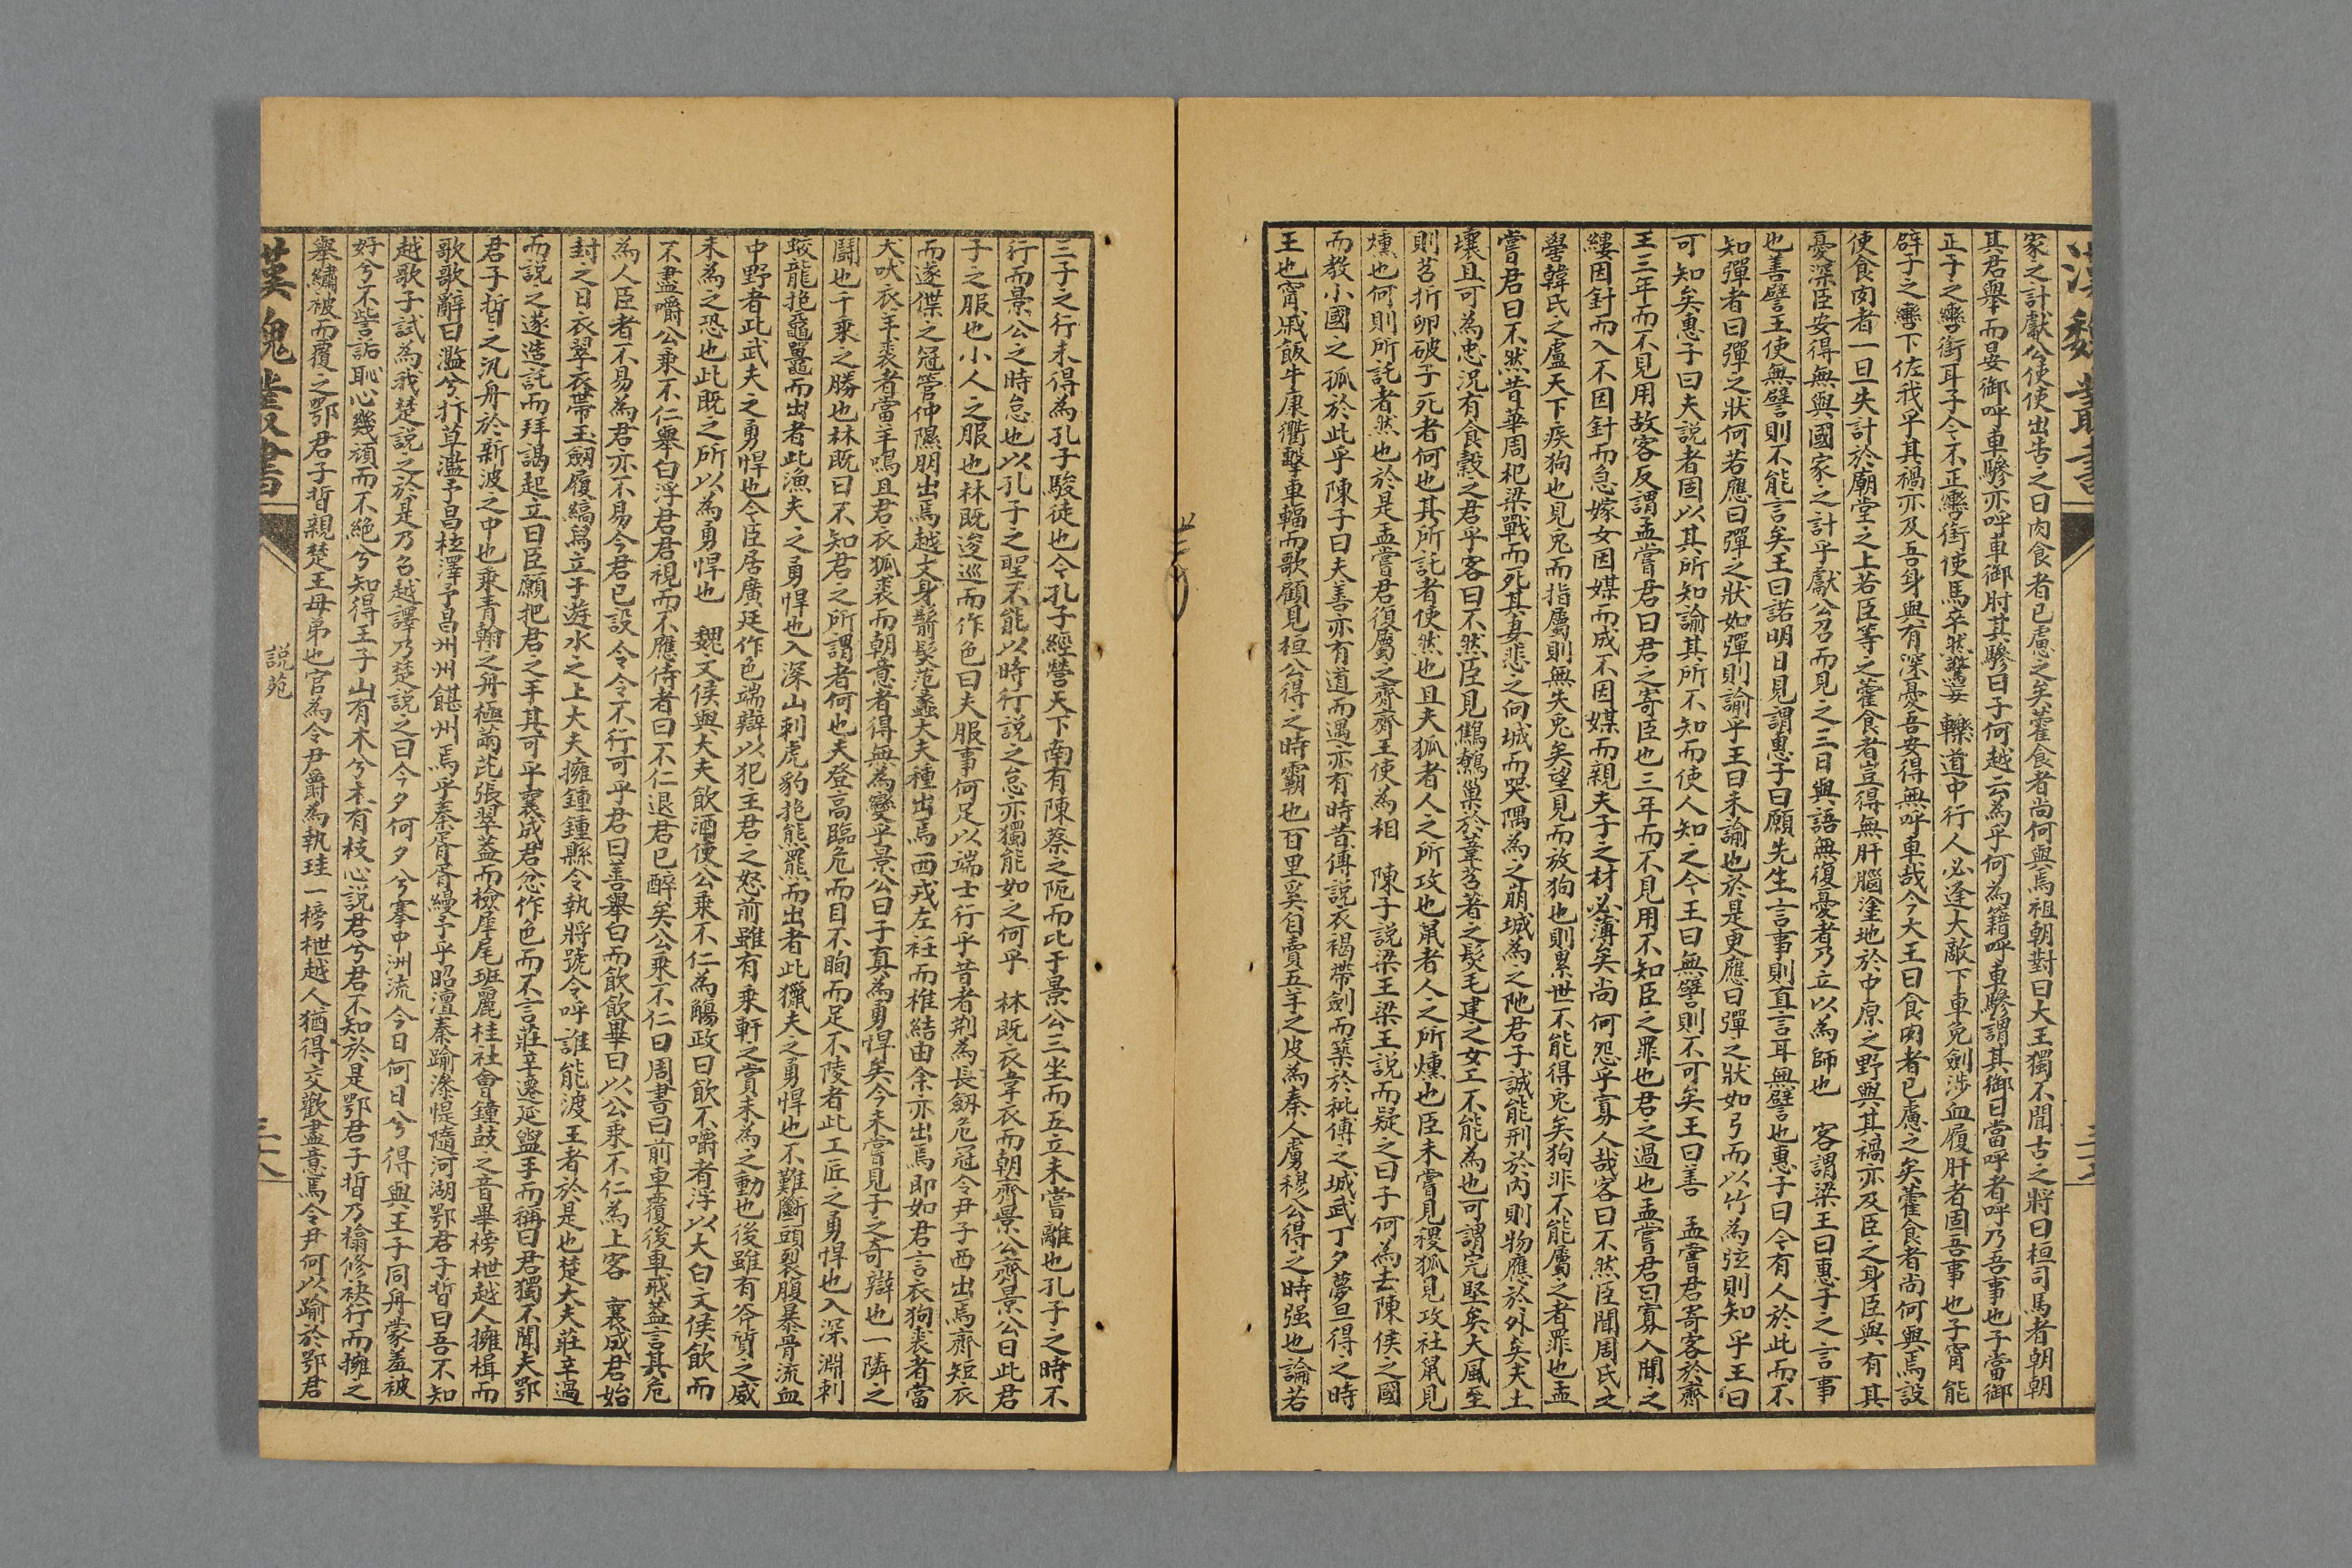 漢魏叢書
家之計獻公使使出告之曰肉食者已慮之矣藿食者尚何與焉祖朝對曰大王獨不聞古之將曰桓司馬者朝朝
其君舉而晏御呼車驂亦呼車御肘其驂曰子何越云為乎何為籍呼車驂謂其御曰當呼者呼乃吾事也子當御
正子之轡銜耳子今不正轡銜使馬卒然驚妄轢道中行人必逢大敵下車免劍涉血履肝者固吾事也子甯能
辟子之轡下佐我乎其禍亦及吾身與有深憂吾安得無呼車哉今大王曰食肉者已慮之矣藿食者尚何與焉設
使食肉者一旦失計於廟堂之上若臣等之藿食者豈得無肝腦塗地於中原之野與其禍亦及臣之身臣與有其
憂深臣安得無與國家之計乎獻公召而見之三日與語無復憂者乃立以為師也 客謂梁王曰惠子之言事
也善譬王使無譬則不能言矣王曰諾明日見謂惠子曰願先生言事則直言耳無譬也惠子曰今有人於此而不
知彈者曰彈之狀何若應曰彈之狀如彈則諭乎王曰未諭也於是更應曰彈之狀如弓而以竹為弦則知乎王曰
可知矣惠子曰夫說者固以其所知諭其所不知而使人知之今王曰無譬則不可矣王曰善 孟嘗君寄客於齊
王三年而不見用故客反謂孟嘗君曰君之寄臣也三年而不見用不知臣之罪也君之過也孟嘗君曰寡人聞之
縷因針而入不因針而急嫁女因媒而成不因媒而親夫子之材必薄矣尚何怨乎寡人哉客曰不然臣聞周氏之
嚳韓氏之盧天下疾狗也見兔而指屬則無失兔矣望見而放狗也則累世不能得兔矣狗非不能屬之者罪也孟
嘗君曰不然昔華周杞梁戰而死其妻悲之向城而哭隅為之崩城為之阤君子誠能刑於內則物應於外矣夫土
壤且可為忠況有食穀之君乎客曰不然臣見鷦鷯巢於葦苕著之髮毛建之女工不能為也可謂完堅矣大風至
則苕折卵破子死者何也其所託者使然也且夫狐者人之所攻也鼠者人之所燻也臣未嘗見稷狐見攻社鼠見
燻也何則所託者然也於是孟嘗君復屬之齊齊王使為相 陳子說梁王梁王說而疑之曰子何為去陳侯之國
而教小國之孤於此乎陳子曰夫善亦有道而遇亦有時昔傅說衣褐帶劍而築於秕傅之城武丁夕夢旦得之時
王也甯戚飯牛康衢擊車輻而歌顧見桓公得之時霸也百里奚自賣五羊之皮為秦人虜穆公得之時强也論若
三子之行未得為孔子駿徒也今孔子經營天下南有陳蔡之阨而北于景公三坐而五立未嘗離也孔子之時不
行而景公之時怠也以孔子之聖不能以時行說之怠亦獨能如之何乎 林既衣韋衣而朝齊景公齊景公曰此君
子之服也小人之服也林既逡巡而作色曰夫服事何足以端士行乎昔者荆為長劒危冠令尹子西出焉齊短衣
而遂傑之冠管仲隰朋出焉越文身鬋髮范蠡大夫種出焉西戎左衽而稚結由余亦出焉即如君言衣狗裘者當
犬吠衣羊裘者當羊鳴且君衣狐裘而朝意者得無為變乎景公曰子真為勇悍矣今未嘗見子之奇辯也一隣之
鬪也千乘之勝也林既曰不知君之所謂者何也夫登高臨危而目不眴而足不陵者此工匠之勇悍也入深淵刺
蛟龍抱黿鼉而出者此漁夫之勇悍也入深山刺虎豹抱熊羆而出者此獵夫之勇悍也不難斷頭裂腹暴骨流血
中野者此武夫之勇悍也今臣居廣廷作色端辯以犯主君之怒前雖有乘軒之賞未為之動也後雖有斧質之威
未為之恐也此既之所以為勇悍也 魏文侯與大夫飲酒使公乘不仁為觴政曰飲不嚼者浮以大白文侯飲而
不盡嚼公乘不仁舉白浮君君視而不應侍者曰不仁退君已醉矣公乘不仁曰周書曰前車覆後車戒蓋言其危
為人臣者不易為君亦不易今君已設令令不行可乎君曰善舉白而飲飲畢曰以公乘不仁為上客 襄成君始
封之日衣翠衣帶玉劒履縞舄立于遊水之上大夫擁鍾鍾縣令執將號令呼誰能渡王者於是也楚大夫莊辛過
而說之遂造託而拜謁起立曰臣願把君之手其可乎襄成君忿作色而不言莊辛遷延盥手而稱曰君獨不聞夫鄂
君子晳之汎舟於新波之中也乘青翰之舟極䓣芘張翠蓋而檢犀尾班麗桂社會鐘鼓之音畢榜枻越人擁楫而
歌歌辭曰濫兮抃草濫予昌枑澤予昌州州䭇州焉乎秦胥胥縵予乎昭澶秦踰滲惿隨河湖鄂君子晳曰吾不知
越歌子試為我楚說之於是乃召越譯乃楚說之曰今夕何夕兮搴中洲流今日何日兮得與王子同舟蒙羞被
好兮不訾詬恥心幾頑而不絕兮知得王子山有木兮木有枝心說君兮君不知於是鄂君子晳乃㩉修袂行而擁之
舉繡被而覆之鄂君子晳親楚王母弟也官為令尹爵為執珪一榜枻越人猶得交歡盡意焉今尹何以踰於鄂君
漢魏叢書
說苑
三十八